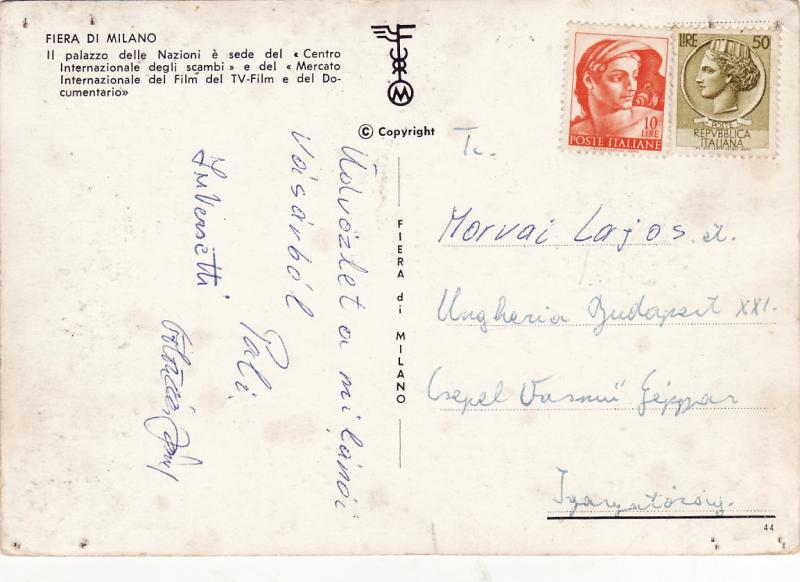 FIERA DI MILANO
Il palazzo delle Nazioni è sede del «Centro
Internazionale degli scambi» e del «Mercato
Internazionale del Film del TV-Film e del Do-
cumentario»
M
© Copyright
10
LIRE
POSTE ITALIANE
LIRE 50
POSTE
REPVBBLICA
ITALIANA
FIERA di MILANO
Üdvözlet a milánói
vásárból
Pali
Tc.
Morvai Lajos
Ungheria Budapest XXI.
Csepel Vasmű Gépgyár
Igazgatóság.
44